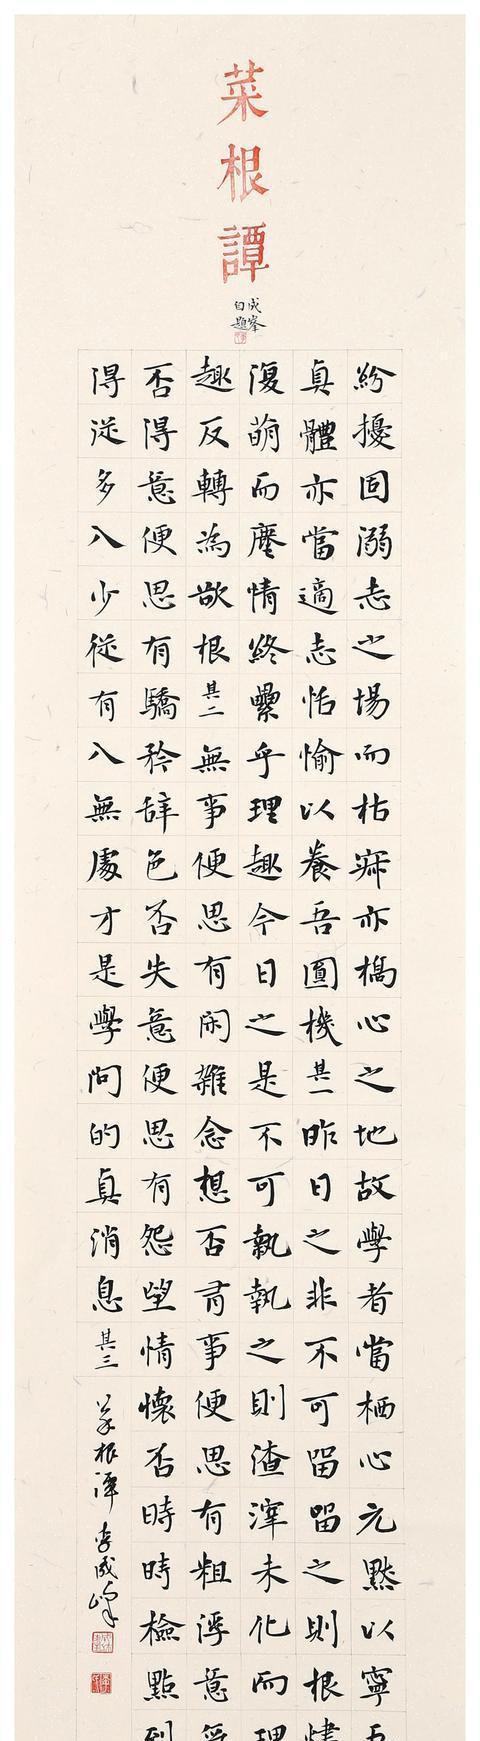 菜根譚
成峯
自題
紛擾固溺志之場而枯寂亦槁心之地故學者當栖心元默以寧
真體亦當適志恬愉以養吾圓機其一昨日之非不可留留之則根
復萌而塵情終纍乎理趣今日之是不可執執之則渣滓未化而理
趣反轉為欲根其二無事便思有閑雜念想否有事便思有粗浮意
否得意便思有驕矜辞色否失意便思有怨望情懷否時時檢點到
得從多入少從有入無處才是學問的真消息其三
菜根譚李成峰